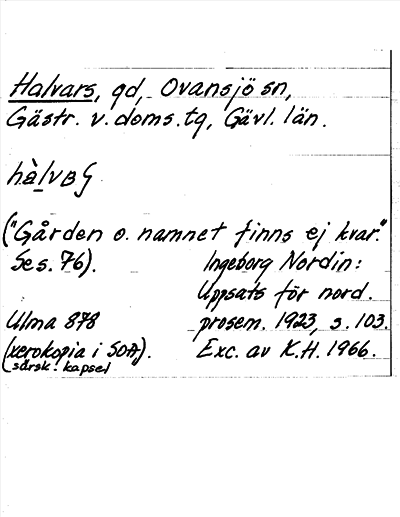 Halvars, gd, Ovansjö sn,
Gästr. v. doms. tg, Gävl. län.
("Gården o. namnet finns ej kvar."
Se s. 76).
Ingeborg Nordin:
Uppsats för nord.
Ulma 878
prosem. 1923, s. 103.
(xerokopia i SOA).
Exc. av K.H. 1966.
särsk. kapsel